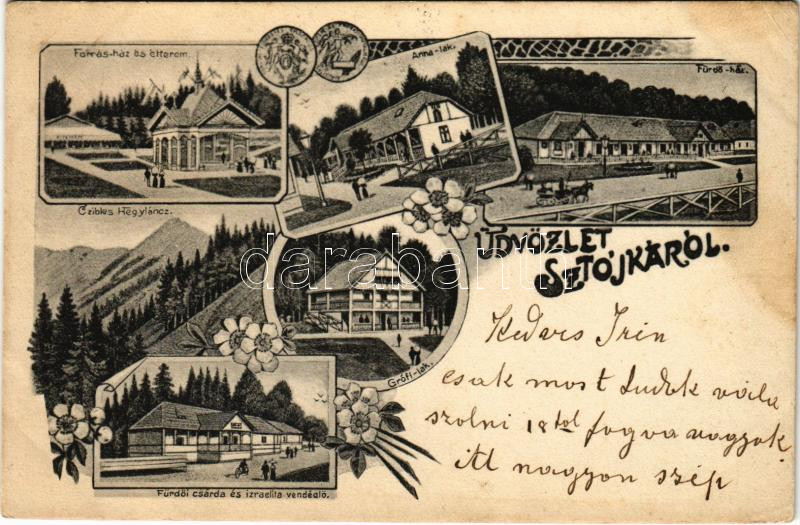 Forrás-ház és étterem.
Anna-lak.
Fürdő-ház.
Czibles Hegyláncz.
ÜDVÖZLET
SZTOJKÁRÓL.
Grófi-lak.
Fürdői csárda és izraelita vendéglő.
darabanth
Kedves Irén
csak most tudok vála
szolni 18 tol fogva vagyok
itt nagyon szép